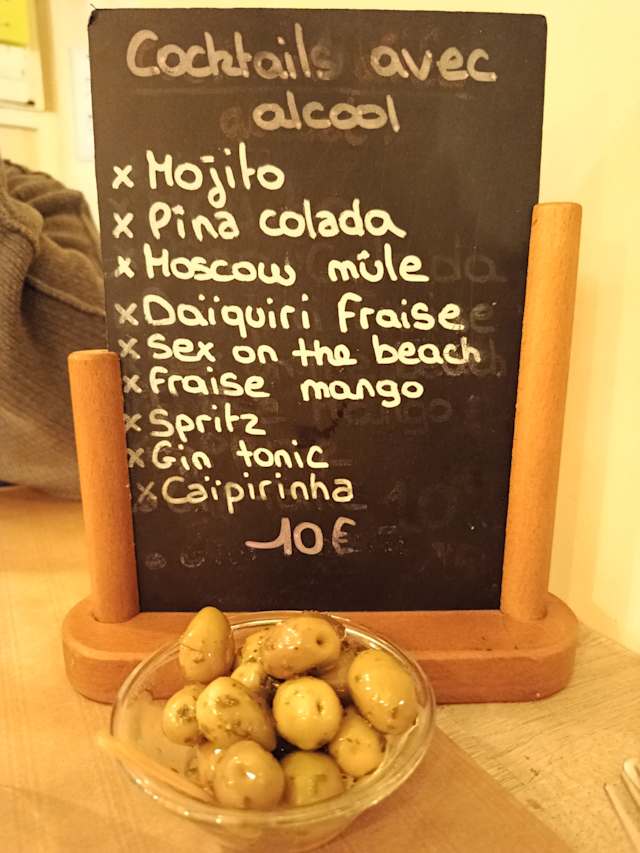 Cocktails avec
alcool
x Mojito
x Pina colada
x Moscow mûle
x Daïquiri Fraise
x Sex on the beach
x Fraise mango
x Spritz
x Gin tonic
x Caïpirinha
10€